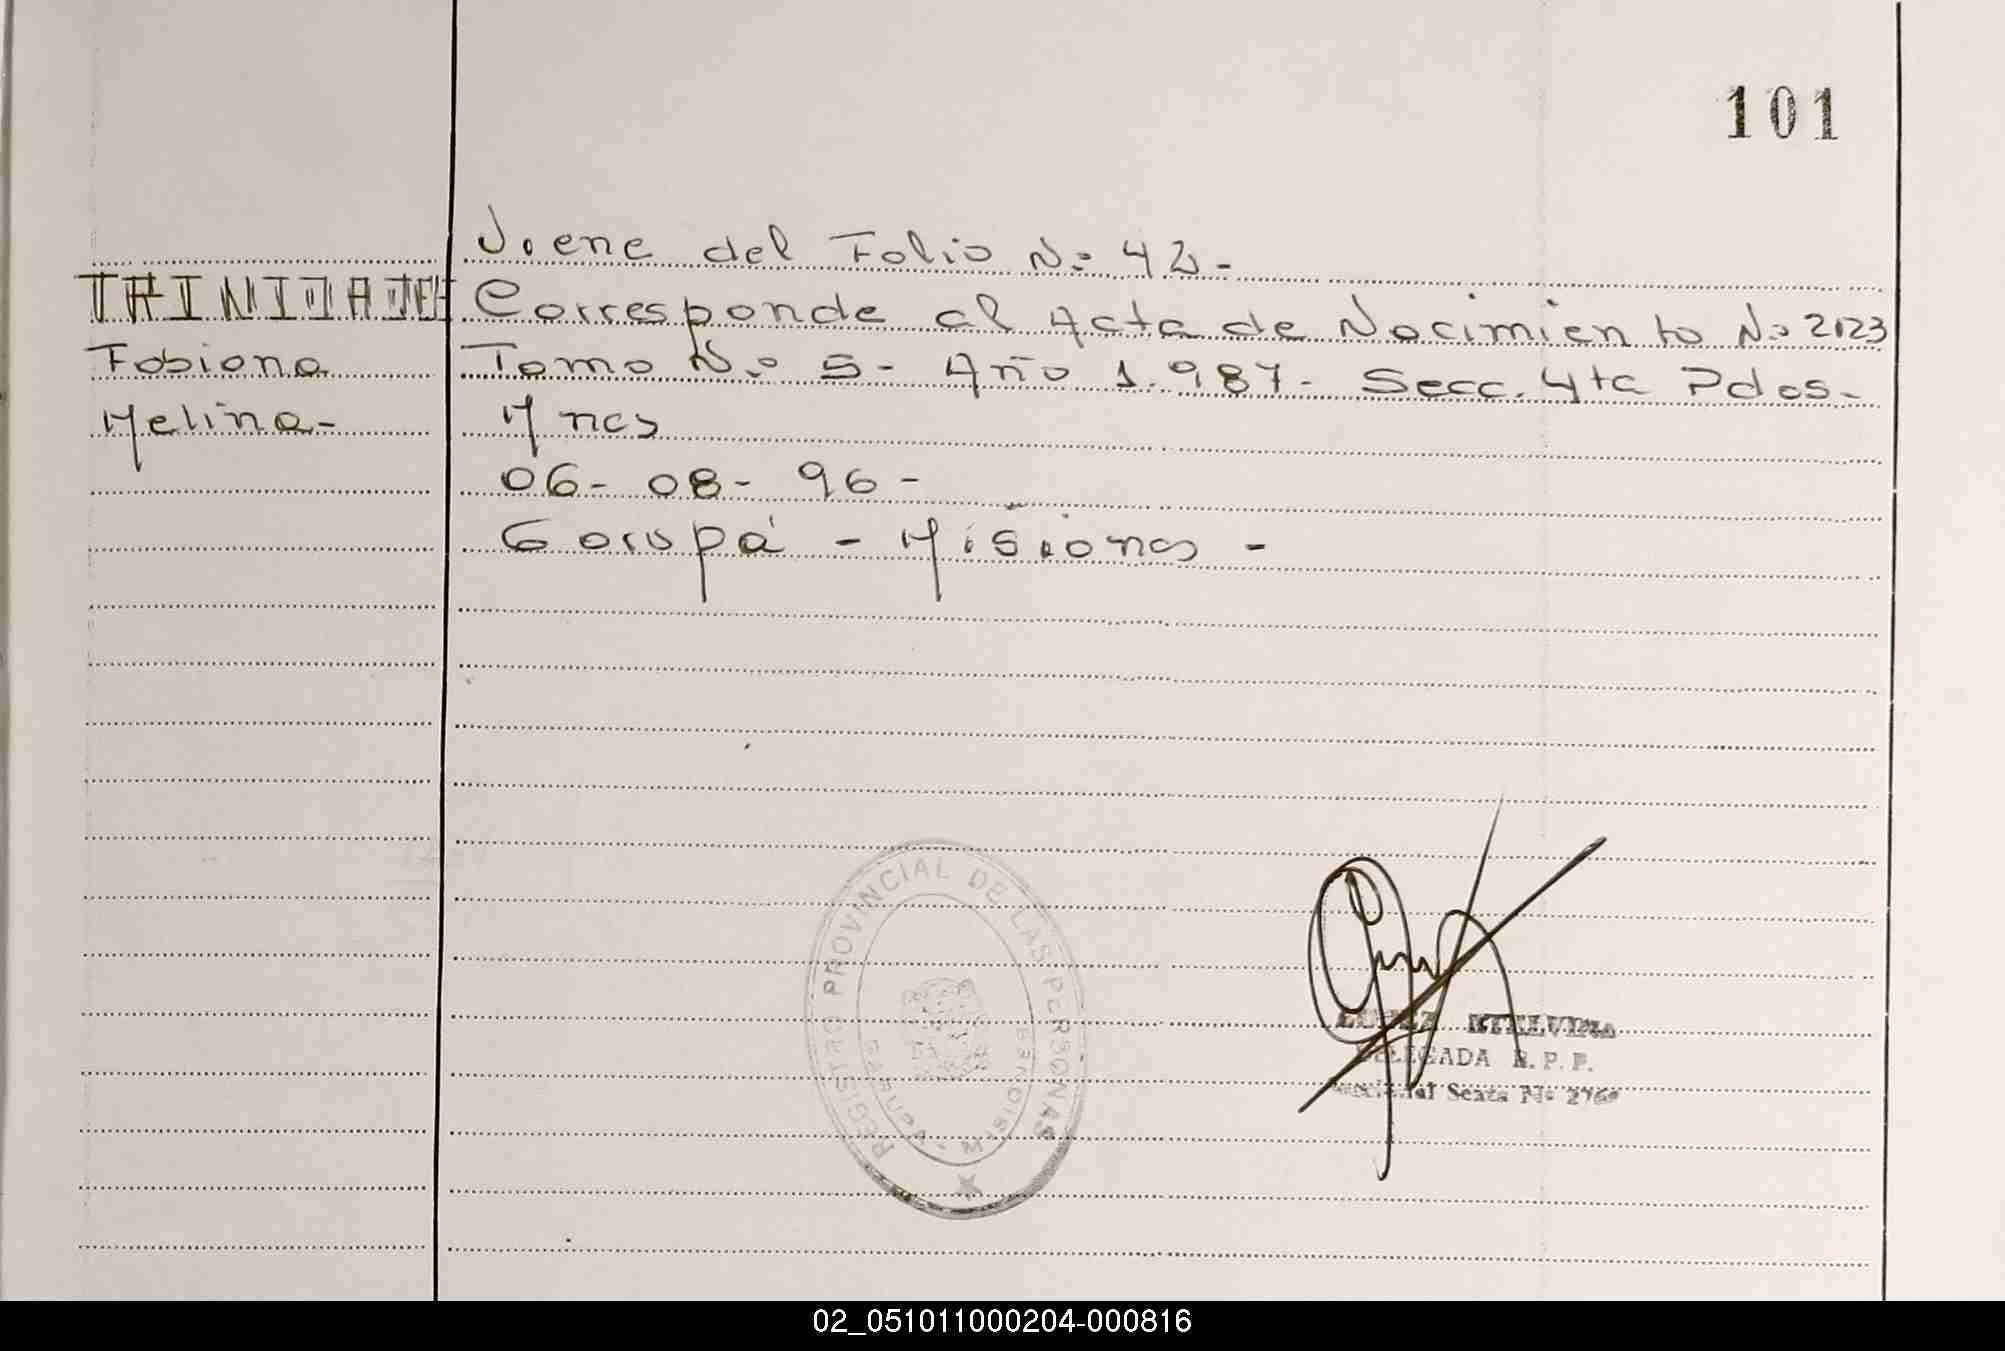 101
Viene del Folio Nº 42-
TRINIDADE Corresponde al Acta de Nacimiento Nº 2123
Fabiana Tomo Nº 5- Año 1.987- Secc. 4ta Pdas-
Melina- Mnes
06-08-96-
Garupá - Misiones -
REGISTRO PROVINCIAL DE LAS PERSONAS
GARUPA - MISIONES
LOPEZ ETELVINA
DELEGADA R.P.P.
Sexta Nº
02_051011000204-000816